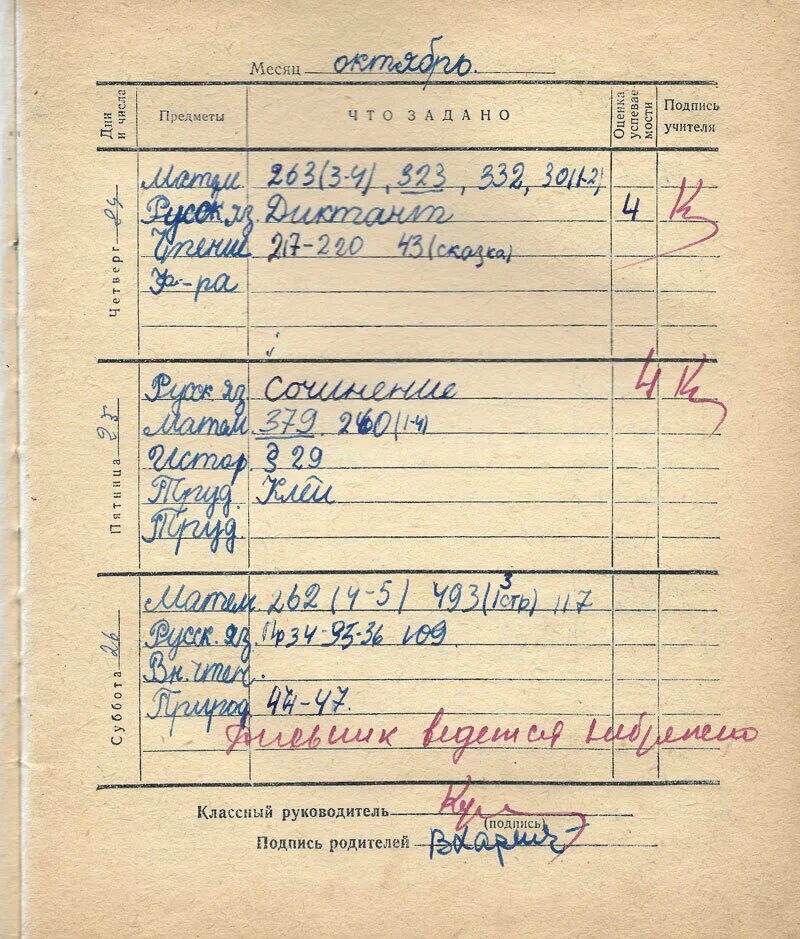 Месяц октябрь.
Дни и числа Предметы ЧТО ЗАДАНО Оценка успевае мости Подпись учителя
Четверг 24
Матем. 263(3-4), 323, 332, 30(1-2)
Русск яз. Диктант 4 К
Чтение 217-220 43(сказка)
Ф-ра
Пятница 25
Русск яз. Сочинение 4 К
Матем. 379. 260(1-4)
Истор. § 29
Труд. Клей
Труд.
Суббота 26
Матем. 262 (4-5) 493(3 стр) 117
Русск. яз. Пр34-35-36 109
Вн. чтен.
Природ. 44-47.
Дневник ведется небрежно
Классный руководитель
(подпись)
Подпись родителей